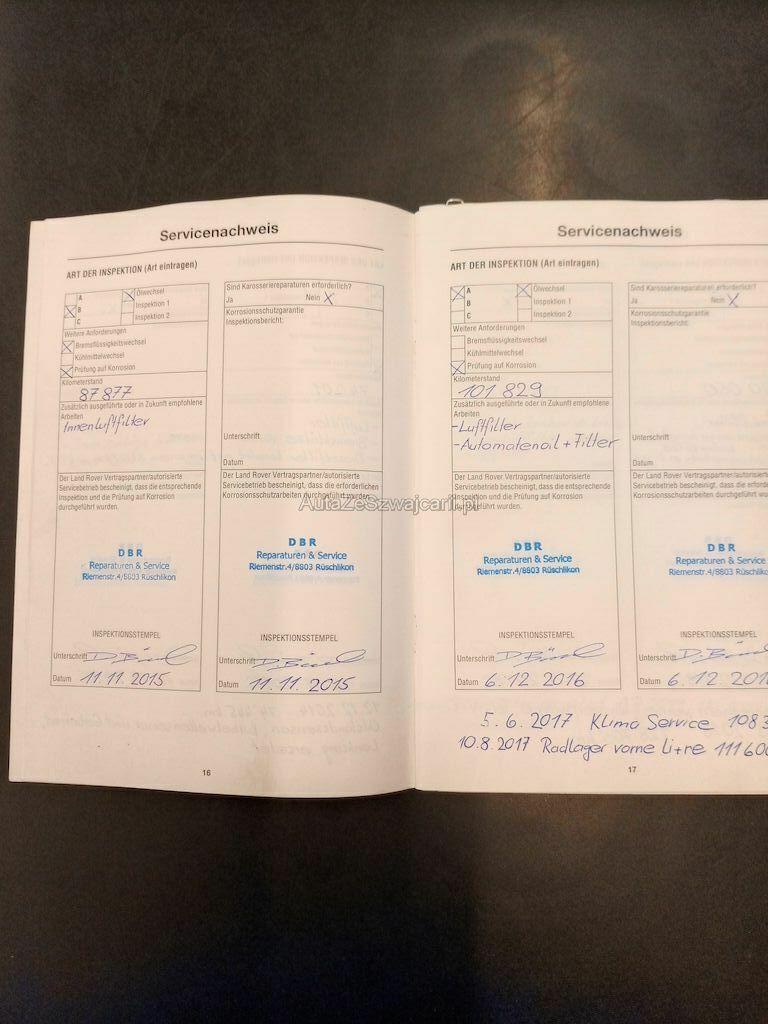 Servicenachweis
ART DER INSPEKTION (Art eintragen)
A
B
C
Ölwechsel
Inspektion 1
Inspektion 2
Weitere Anforderungen
Bremsflüssigkeitswechsel
Kühlmittelwechsel
Prüfung auf Korrosion
Kilometerstand
87 877
Zusätzlich ausgeführte oder in Zukunft empfohlene
Arbeiten
Innenluftfilter
Der Land Rover Vertragspartner/autorisierte
Servicebetrieb bescheinigt, dass die entsprechende
Inspektion und die Prüfung auf Korrosion
durchgeführt wurden.
DBR
Reparaturen & Service
Riemenstr.4/8803 Rüschlikon
INSPEKTIONSSTEMPEL
Unterschrift
Datum 11.11.2015
Sind Karosseriereparaturen erforderlich?
Ja Nein X
Korrosionsschutzgarantie
Inspektionsbericht:
Unterschrift
Datum
Der Land Rover Vertragspartner/autorisierte
Servicebetrieb bescheinigt, dass die erforderlichen
Korrosionsschutzarbeiten durchgeführt wurden.
DBR
Reparaturen & Service
Riemenstr.4/8803 Rüschlikon
INSPEKTIONSSTEMPEL
Unterschrift
Datum 11.11.2015
16
AutaZeSzwajcarii.pl
Servicenachweis
ART DER INSPEKTION (Art eintragen)
A
B
C
Ölwechsel
Inspektion 1
Inspektion 2
Weitere Anforderungen
Bremsflüssigkeitswechsel
Kühlmittelwechsel
Prüfung auf Korrosion
Kilometerstand
101 829
Zusätzlich ausgeführte oder in Zukunft empfohlene
Arbeiten
-Luftfilter
-Automatenoil + Filter
Der Land Rover Vertragspartner/autorisierte
Servicebetrieb bescheinigt, dass die entsprechende
Inspektion und die Prüfung auf Korrosion
durchgeführt wurden.
DBR
Reparaturen & Service
Riemenstr.4/8803 Rüschlikon
INSPEKTIONSSTEMPEL
Unterschrift
Datum 6.12.2016
Sind Karosseriereparaturen erforderlich?
Ja Nein X
Korrosionsschutzgarantie
Inspektionsbericht:
Unterschrift
Datum
Der Land Rover Vertragspartner/autorisierte
Servicebetrieb bescheinigt, dass die
Korrosionsschutzarbeiten durchgeführt
DBR
Reparaturen & Service
Riemenstr.4/8803
INSPEKTIONSSTEMPEL
Unterschrift
Datum 6.12.201
5.6.2017 Klima Service 1083
10.8.2017 Radlager vorne Li+re 111600
17